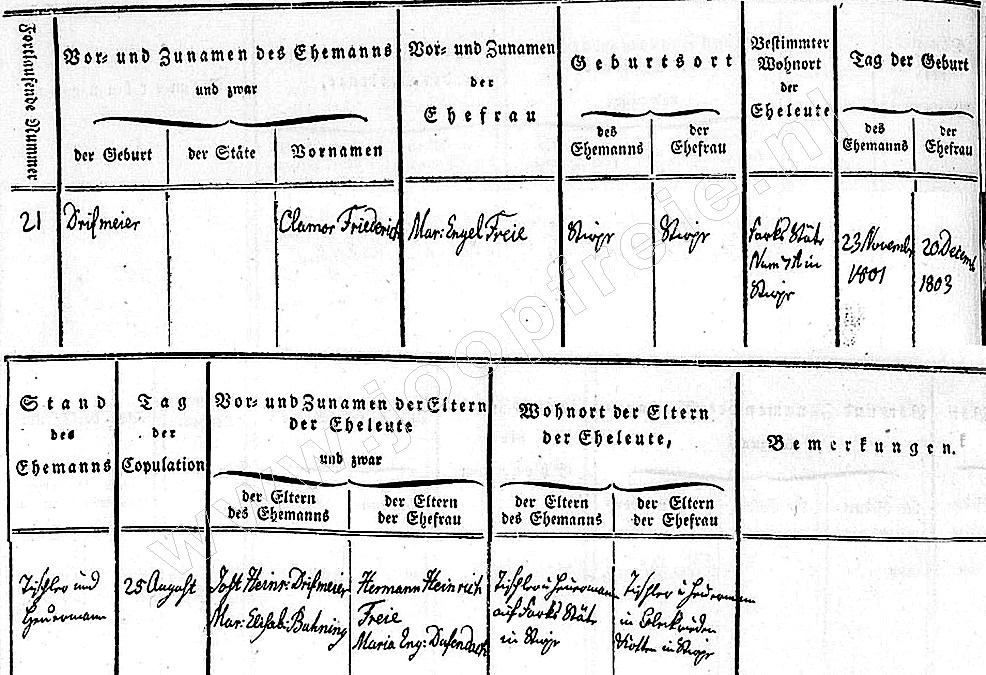 Fortlaufende Nummer
Vor- und Zunamen des Ehemanns
und zwar
der Geburt
der Stäte
Vornamen
Vor- und Zunamen
der
Ehefrau
Geburtsort
des
Ehemanns
der
Ehefrau
Bestimmter
Wohnort
der
Eheleute
Tag der Geburt
des
Ehemanns
der
Ehefrau
21
Drißmeier
Clamor Friederich
Mar: Engel Freie
Stäte
in
23 Novembr
1801
20 Decemb
1803
Stand
des
Ehemanns
Tag
der
Copulation
Vor- und Zunamen der Eltern
der Eheleute
und zwar
der Eltern
des Ehemanns
der Eltern
der Ehefrau
Wohnort der Eltern
der Eheleute,
der Eltern
des Ehemanns
der Eltern
der Ehefrau
Bemerkungen.
Tischler und
Heuermann
25 August
Jost Heinr: Drißmeier
Mar: Elisab: Buhning
Hermann Heinrich
Freie
Maria Eng:
Tischler u Heuermann
auf Stäte
in
Tischler u Heuermann
in
Kotten in
www.joopfreie.nl